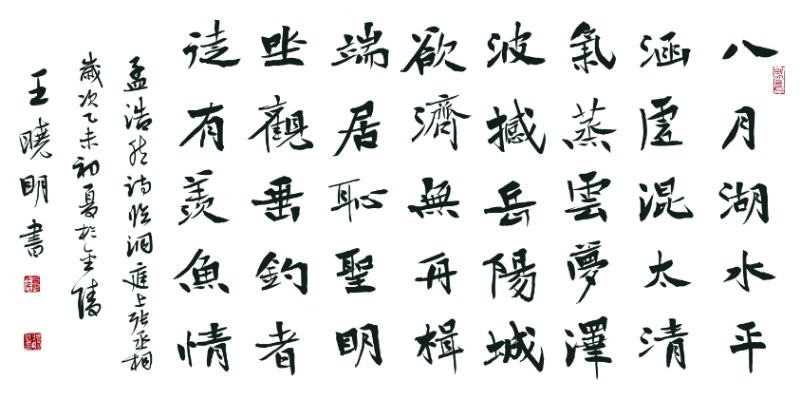 八月湖水平
涵虛混太清
氣蒸雲夢澤
波撼岳陽城
欲濟無舟楫
端居恥聖明
坐觀垂釣者
徒有羨魚情
孟浩然詩臨洞庭上張丞相
歲次乙未初夏於金陵
王曉明書